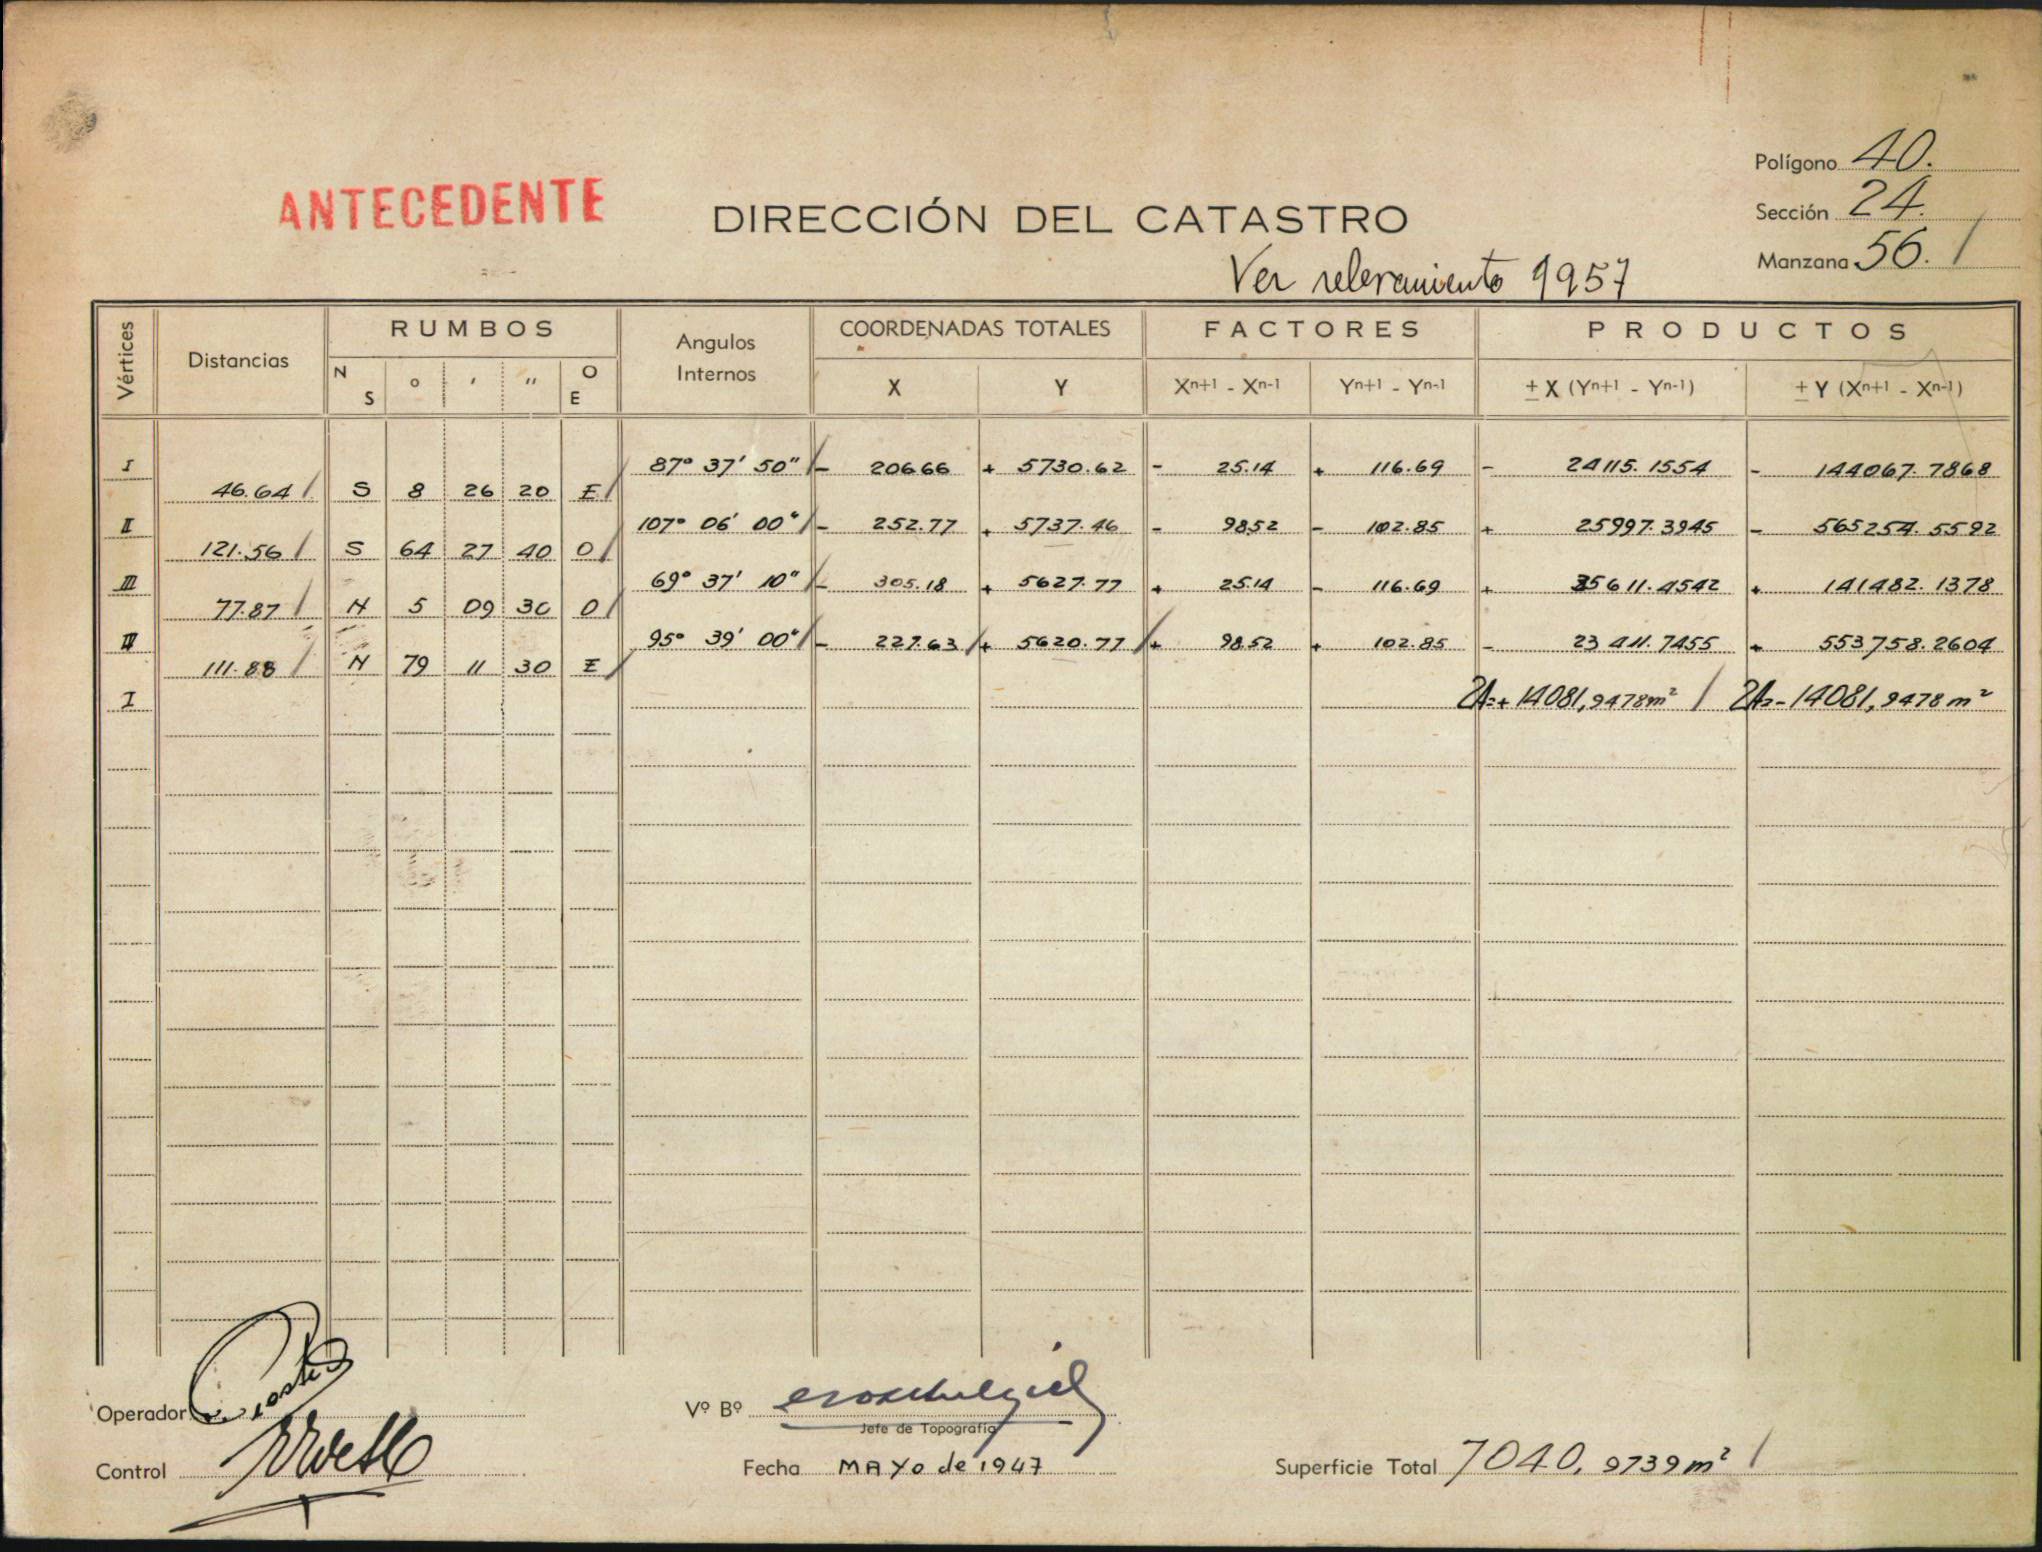 Polígono 40.
ANTECEDENTE
DIRECCIÓN DEL CATASTRO
Sección 24.
Manzana 56. /
Ver relevamiento 9957
Vértices Distancias RUMBOS Angulos Internos COORDENADAS TOTALES FACTORES PRODUCTOS
N S ° ' " O E X Y Xn+1 - Xn-1 Yn+1 - Yn-1 ± X (Yn+1 - Yn-1) ± Y (Xn+1 - Xn-1)
I 87° 37' 50" / - 206.66 + 5730.62 - 25.14 + 116.69 - 24115.1554 - 144067.7868
46.64 / S 8 26 20 E /
II 107° 06' 00" / - 252.77 + 5737.46 - 98.52 - 102.85 + 25997.3945 - 565254.5592
121.56 / S 64 27 40 O /
III 69° 37' 10" / - 305.18 + 5627.77 + 25.14 - 116.69 + 35611.4542 + 141482.1378
77.87 / N 5 09 30 O /
IV 95° 39' 00" / - 227.63 / + 5620.77 / + 98.52 + 102.85 - 23411.7455 + 553758.2604
111.88 / N 79 11 30 E /
I 2A=+14081,9478m² / 2A=-14081,9478 m²
Operador
Vº Bº
Jefe de Topografía
Control
Fecha MAYO de 1947
Superficie Total 7040, 9739 m² /